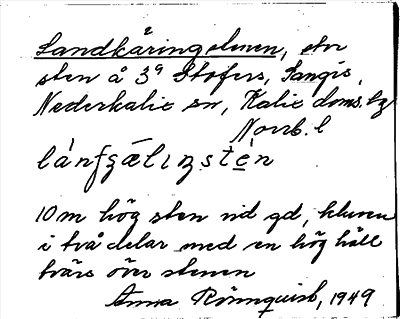 Landkäringstenen, stor
sten å 3ª Stofers, Sangis,
Nederkalix sn, Kalix doms. tg
Norrb. l
10 m hög sten vid gd, kluven
i två delar med en hög häll
tvärs över stenen
Anna Rönnquist, 1949